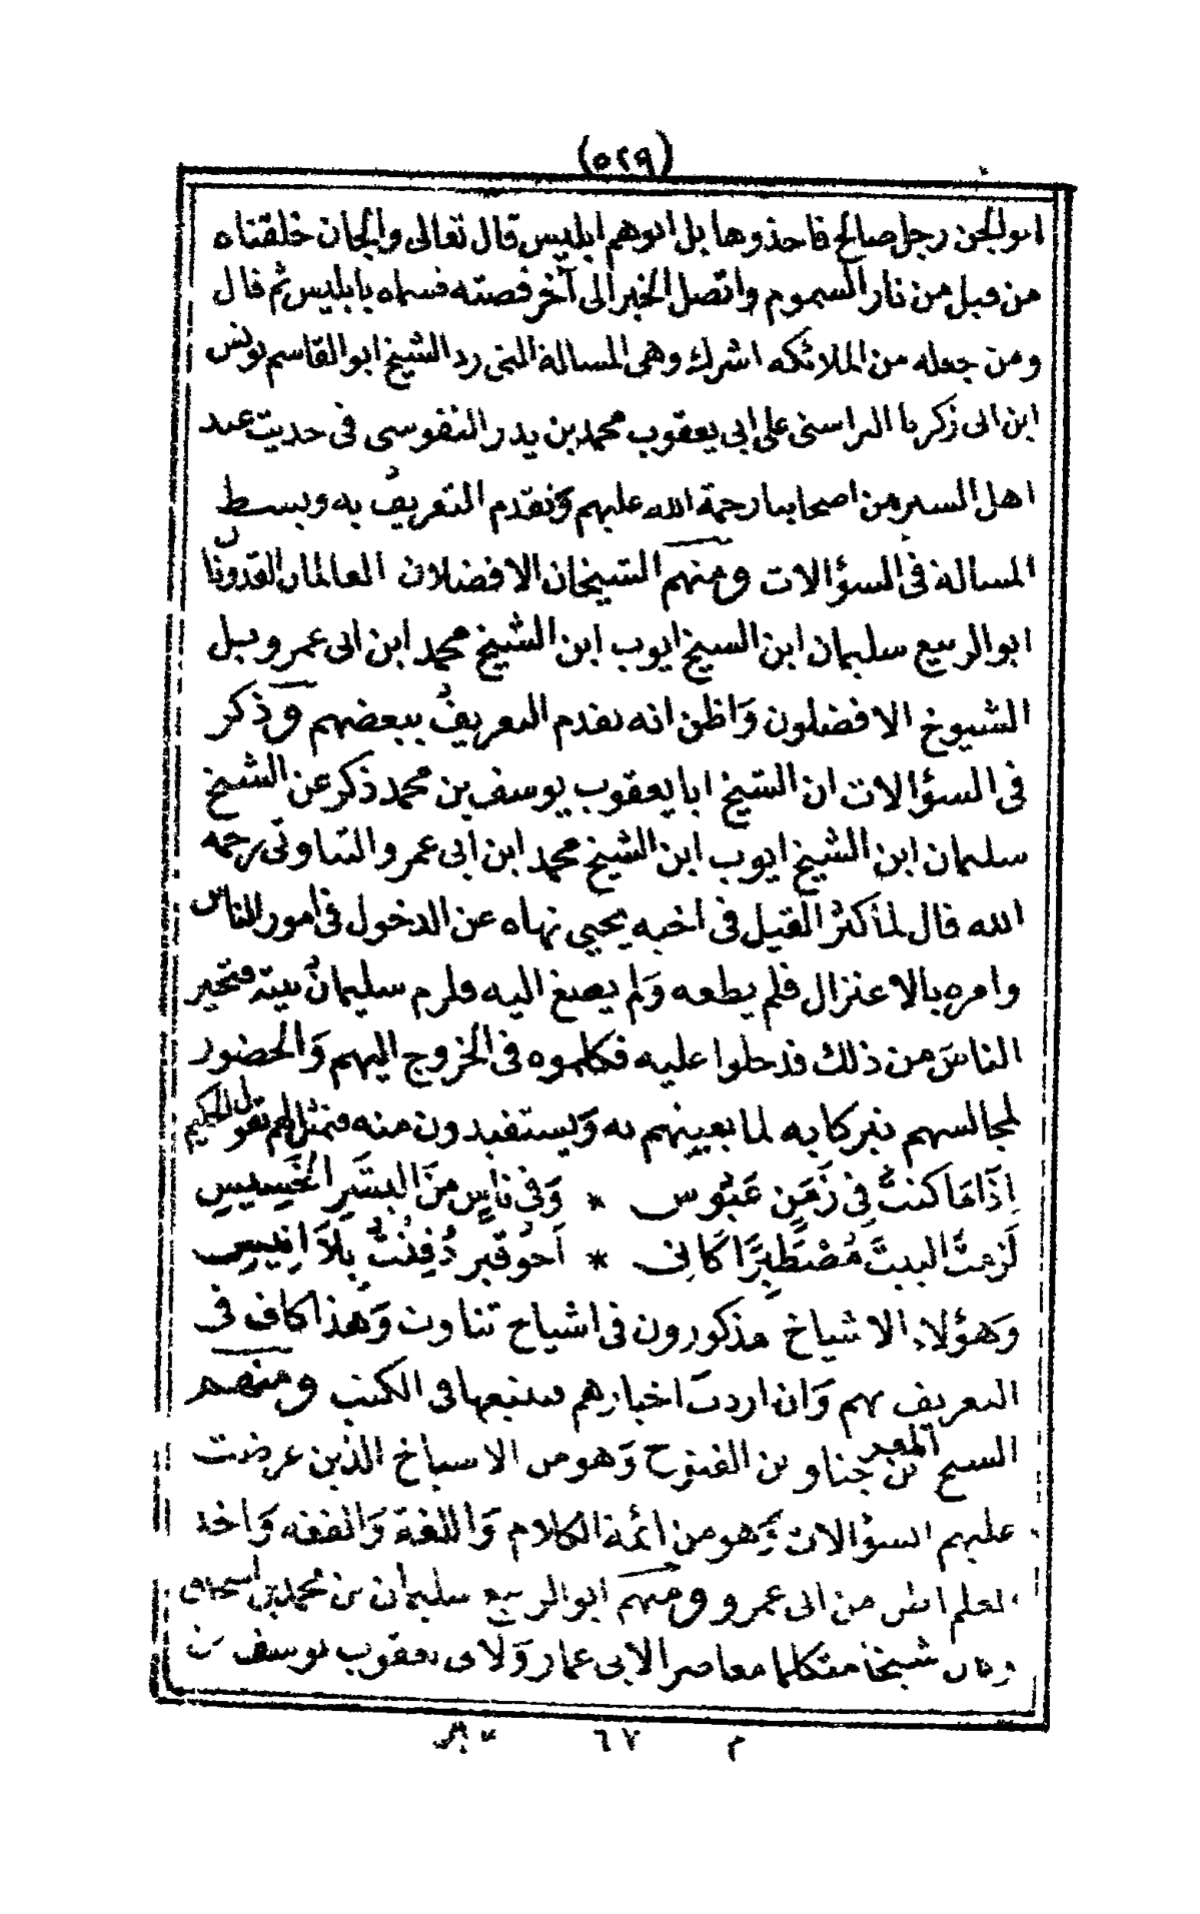 (٥٢٩)
ابو الجن رجل صالح فاخذوها بل ابوهم ابليس قال تعالى والجان خلقناه
من قبل من نار السموم واتصل الخبر الى آخر قصته فسماه بابليس ثم قال
ومن جعله من الملائكه اشرك وهى المسالة التى رد الشيخ ابو القاسم يونس
ابن ابى زكريا على ابى يعقوب محمد بن يدر النفوسى فى حديث عند
اهل السير من اصحابنا رحمة الله عليهم وَتقدم التعريف به وبسط
المسالة فى السؤالات ومنهم الشيخان الافضلان العالمان القدوتان
ابو الربيع سليمان ابن الشيخ ايوب ابن الشيخ محمد ابن ابى عمرو وبل
الشيوخ الافضلون وَاظن انه تقدم التعريف ببعضهم وَذكر
فى السؤالات ان الشيخ ابا يعقوب يوسف بن محمد ذكر عن الشيخ
سليمان ابن الشيخ ايوب ابن الشيخ محمد ابن ابى عمرو التناوتى رحمه
الله قال لما كثر القيل فى اخيه يحيى نهاه عن الدخول فى امور الناس
وامره بالاعتزال فلم يطعه وَلم يصغ اليه فلزم سليمان بيته فتحير
الناس من ذلك فدخلوا عليه فكلموه فى الخروج اليهم وَالحضور
لمجالسهم تبركا به لما يعينهم به وَيستفيدون منه فتمثل لهم بقول الحكيم
اِذَا مَا كنتَ فِى زَمَنٍ عَبُوسٍ * وَفى نَاسٍ مِنَ البشَرِ الخَسِيسِ
لَزِمتُ البيتَ مُصْطَبِرًا كَاَنِى * اَخُو قبرٍ دُفِنتُ بِلَا اَنِيسِ
وَهؤلاء الاشياخ مذكورون فى اشياخ تناوت وَهذا كاف فى
التعريف بهم وَان اردت اخبارهم فتتبعها فى الكتب ومنهم
الشيخ المعز بن جناو بن الفتوح وَهو من الاشياخ الذين عرضت
عليهم السؤالات وَهو من ائمة الكلام وَاللغة وَالفقه وَاخذ
العلم من ابى عمرو ومنهم ابو الربيع سليمان بن محمد بن اسحاق
وكان شيخا متكلما معاصرا لابى عمار وَلابى يعقوب يوسف بن
م ٦٧